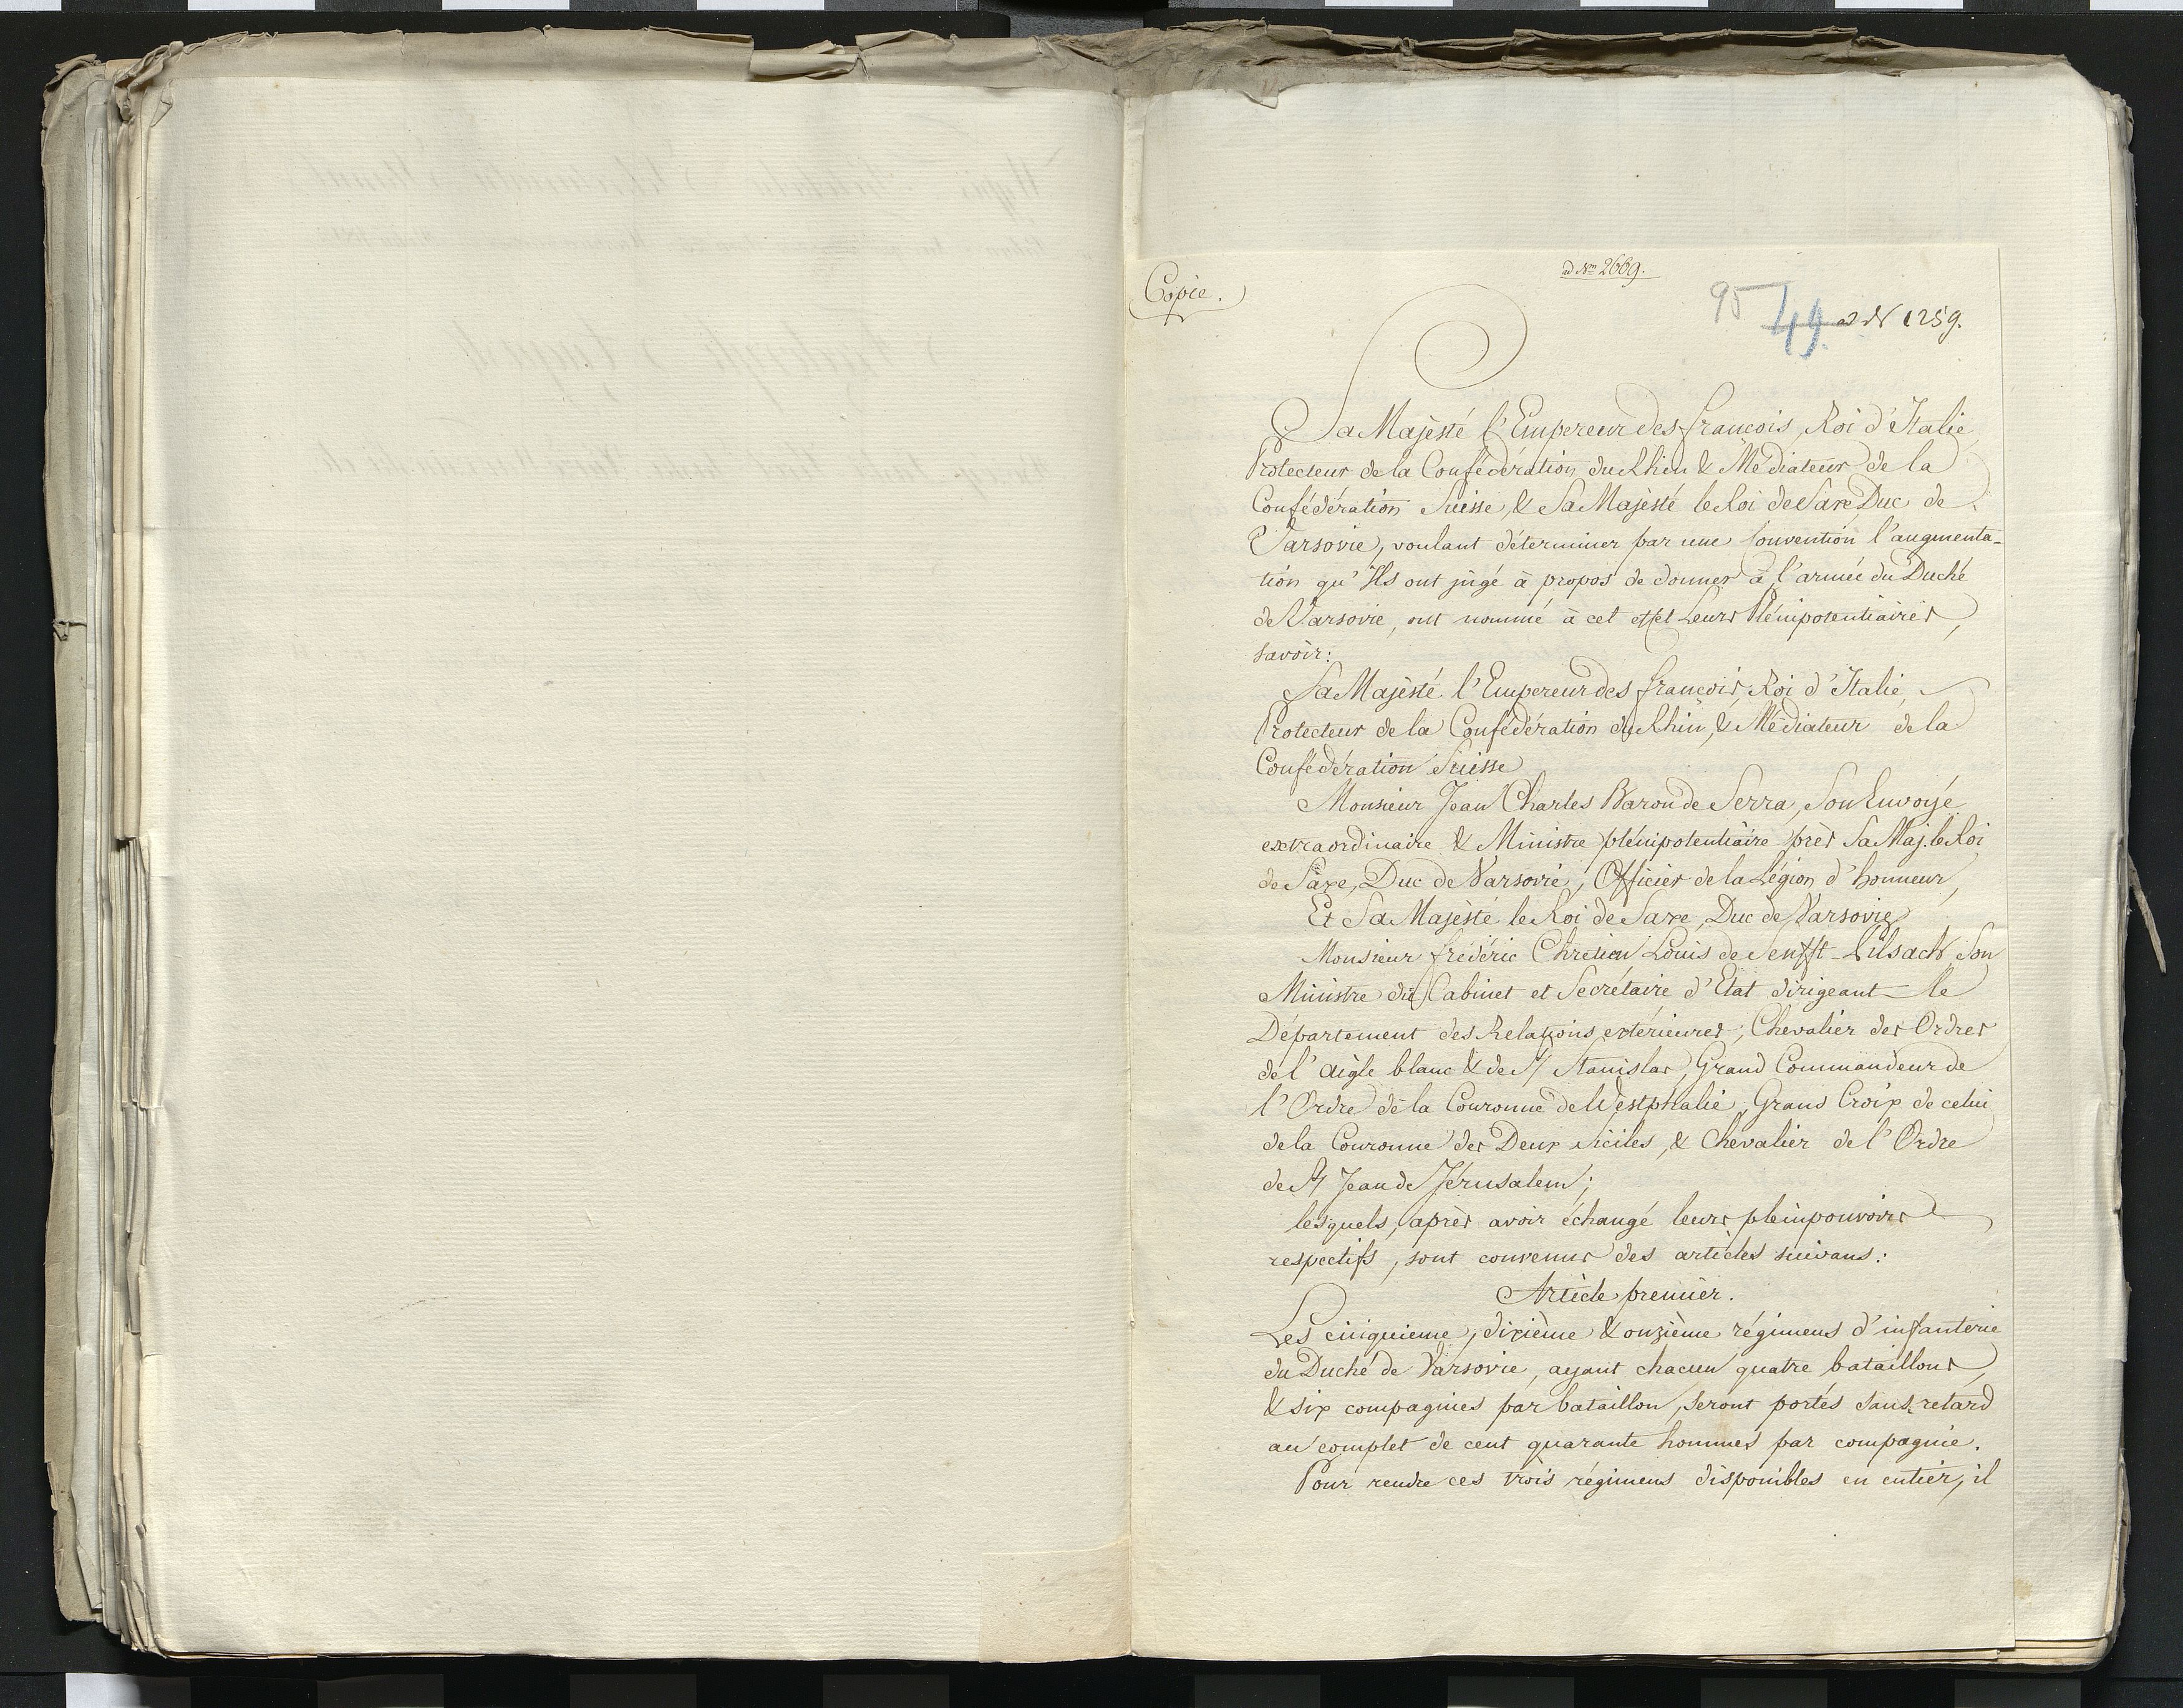 ad Nm 2669.
Copie.
95
49. ad N 1259.
Sa Majésté l'Empereur des françois, Roi d'Italie
Protecteur de la Confédération du Rhin & Médiateur de la
Confédération Suisse, & Sa Majésté le Roi de Saxe Duc de
Varsovie, voulant déterminer par une Convention l'augmenta-
tion qu'Ils ont jugé à propos de donner à l'armée du Duché
de Varsovie, ont nommé à cet effet Leurs Plénipotentiaires,
savoir:
Sa Majésté l'Empereur des françois, Roi d'Italie,
Protecteur de la Confédération du Rhin, & Médiateur de la
Confédération Suisse
Monsieur Jean Charles Baron de Serra, Son Envoyé
extraordinaire & Ministre plénipotentiaire près Sa Maj. le Roi
de Saxe, Duc de Varsovie, Officier de la Légion d'honneur,
Et Sa Majésté le Roi de Saxe, Duc de Varsovie
Monsieur frédéric Chretien Louis de Senfft-Pilsach, Son
Ministre du Cabinet et Secrétaire d'Etat dirigeant le
Département des Relations extérieures, Chevalier des Ordres
de l'aigle blanc & de St Stanislas, Grand Commandeur de
l'Ordre de la Couronne de Westphalie, Grand Croix de celui
de la Couronne des Deux Siciles, & Chevalier de l'Ordre
de St Jean de Jérusalem;
lesquels, après avoir échangé leurs pleinpouvoirs
respectifs, sont convenus des articles suivans:
Article premier.
Les cinquieme, dixième & onzième régimens d'infanterie
du Duché de Varsovie, ayant chacun quatre bataillons,
& six compagnies par bataillon, seront portés sans retard
au complet de cent quarante hommes par compagnie.
Pour rendre ces trois régimens disponibles en entier, il